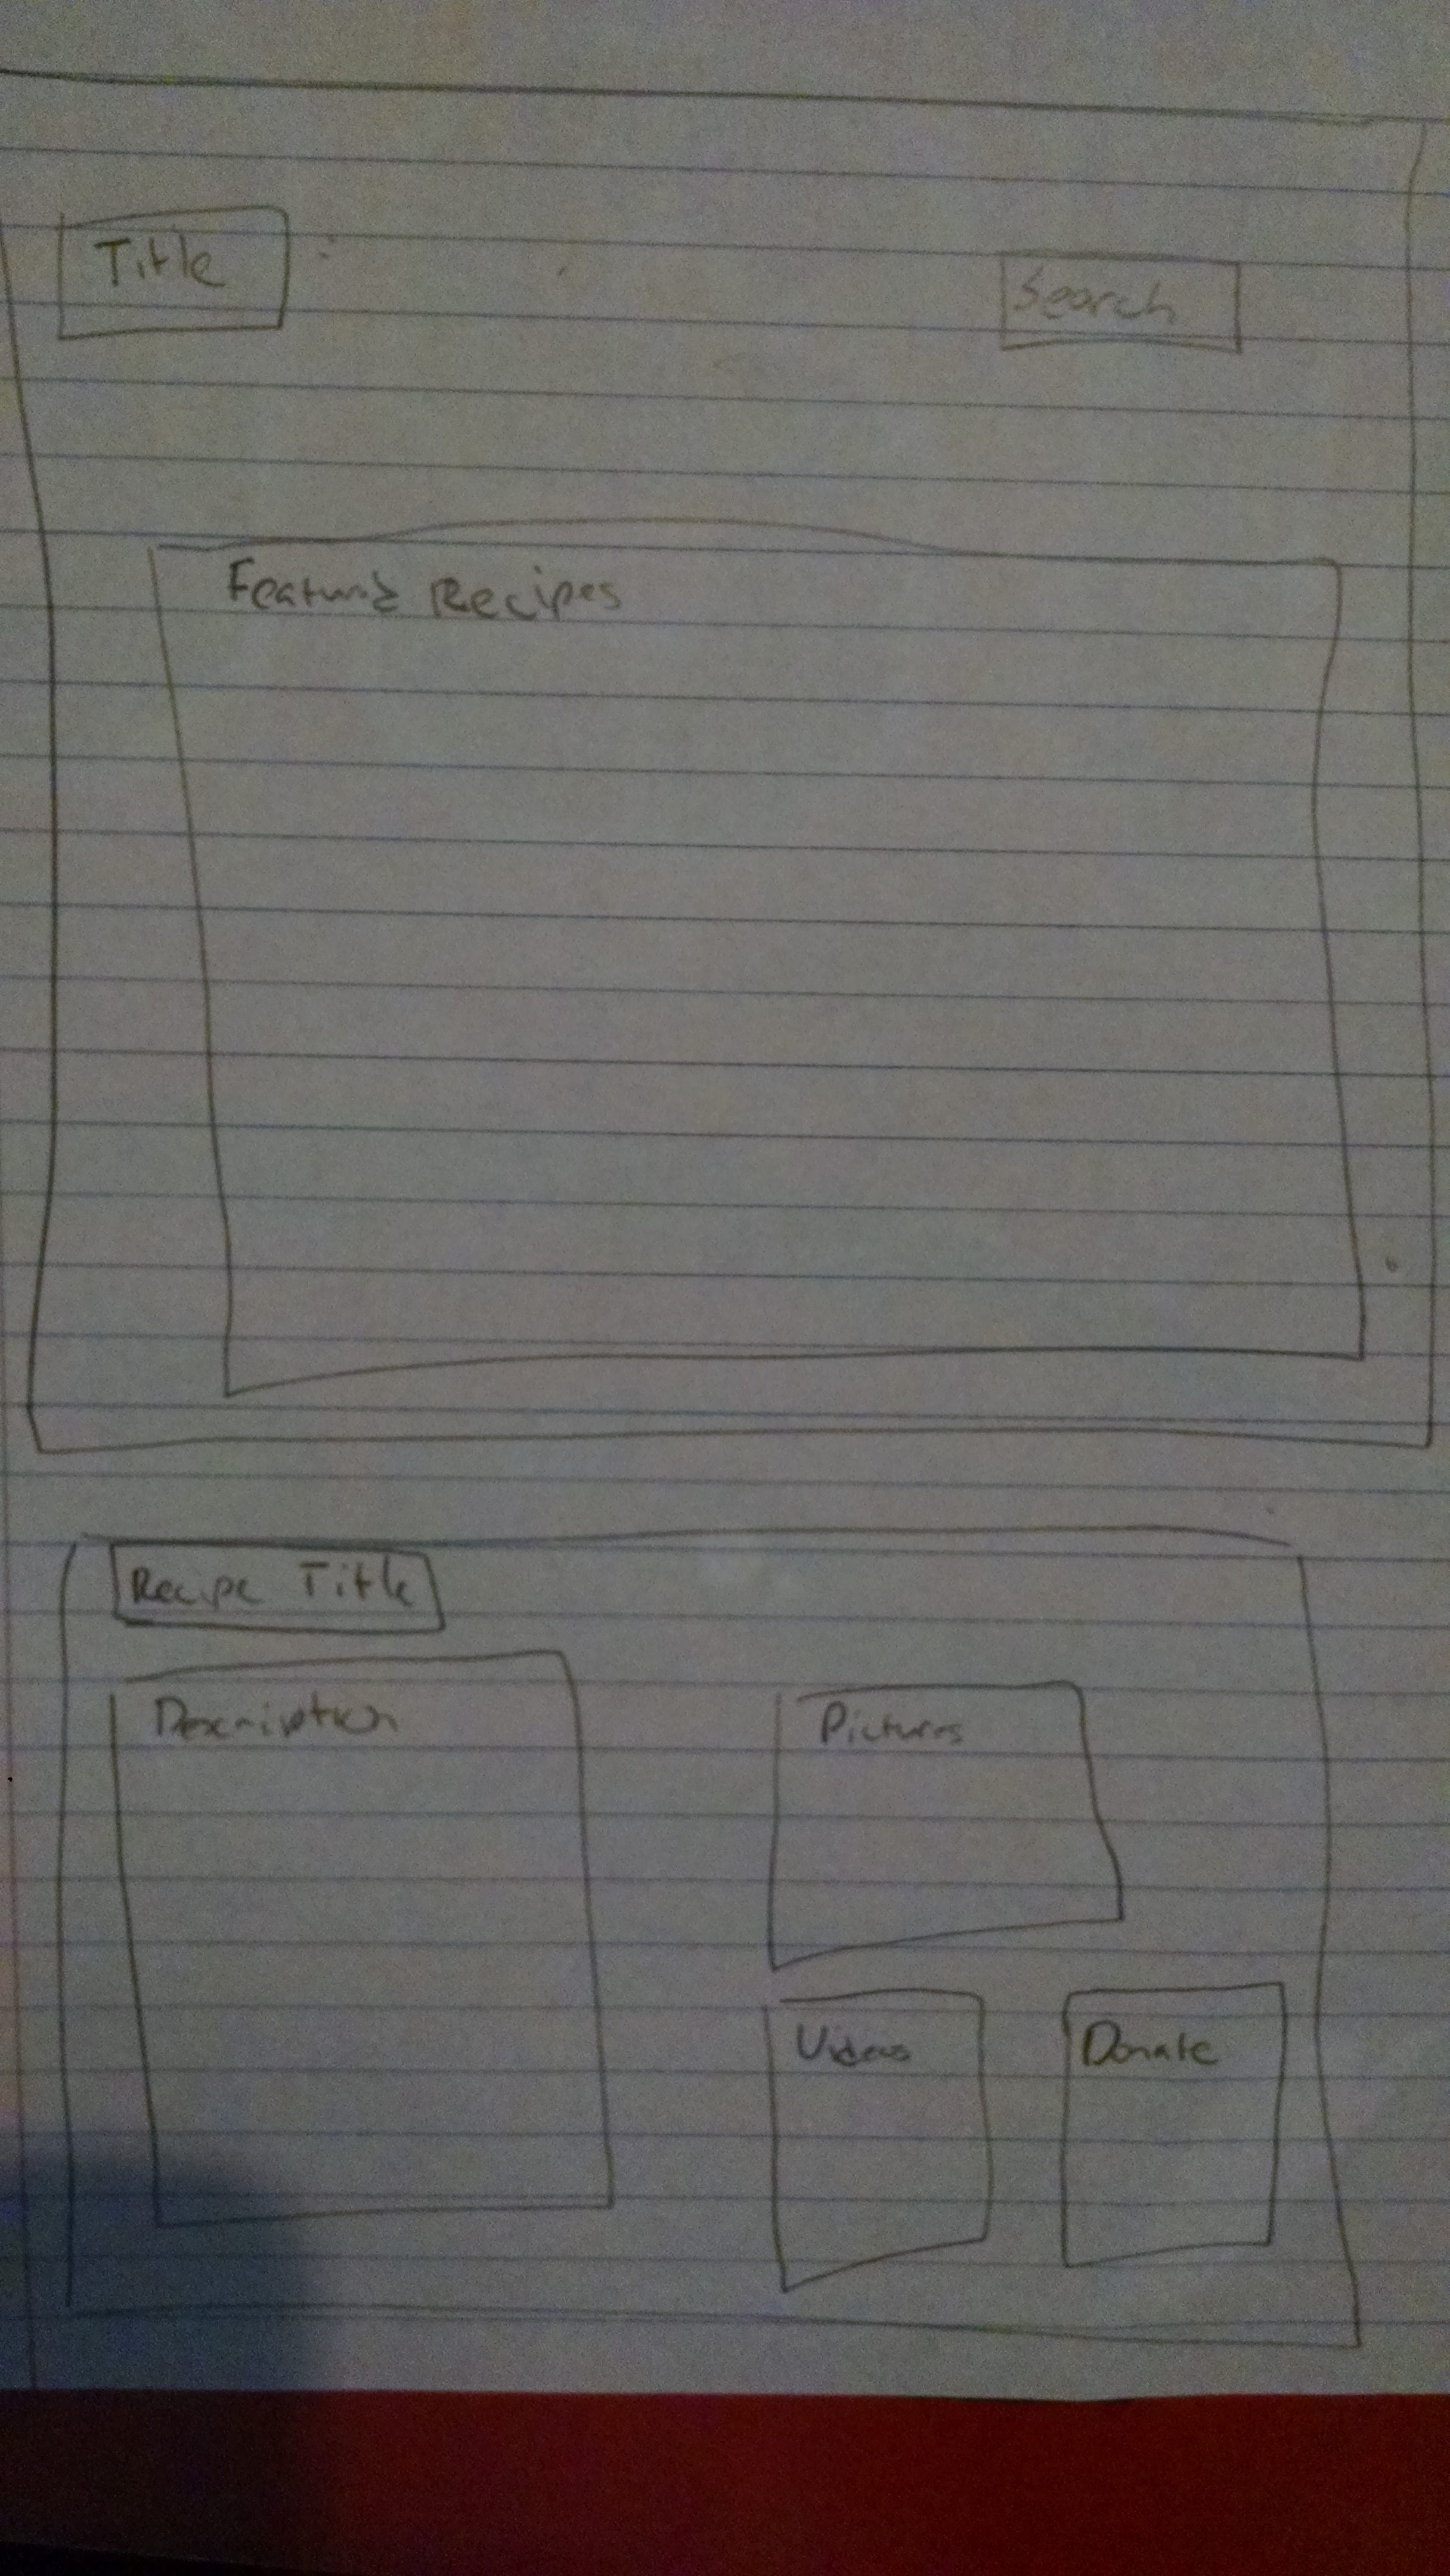 Title
Search
Featured Recipes
Recipe Title
Description
Pictures
Videos
Donate